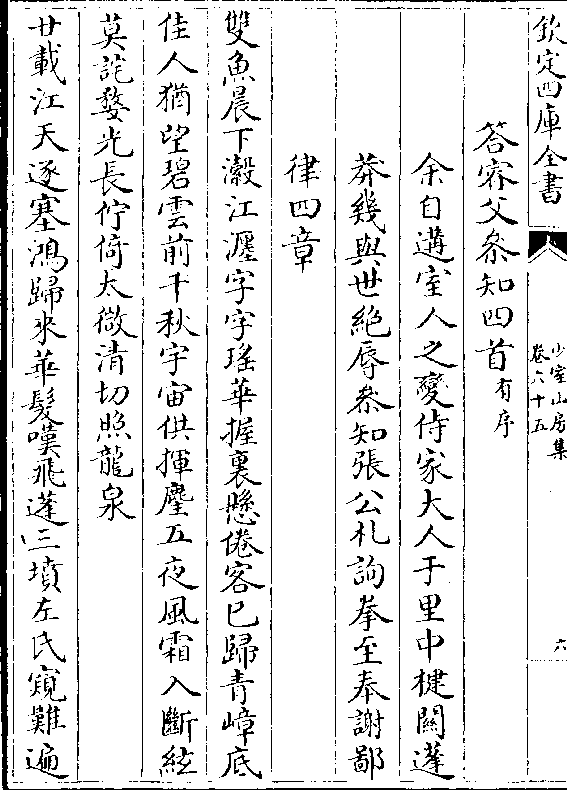 欽定四庫全書
少室山房集
卷六十五
六
答寀父叅知四首有序
余自遘室人之變侍家大人于里中楗關蓬
莽幾與世絶辱叅知張公札詢拳至奉謝鄙
律四章
雙魚晨下瀔江㕓字字瑤華握裏懸倦客已歸青嶂底
佳人猶望碧雲前千秋宇宙供揮麈五夜風霜入斷絃
莫詫婺光長佇倚太微清切照龍泉
廿載江天逐塞鴻歸來華髮嘆飛蓬三墳左氏窺難遍